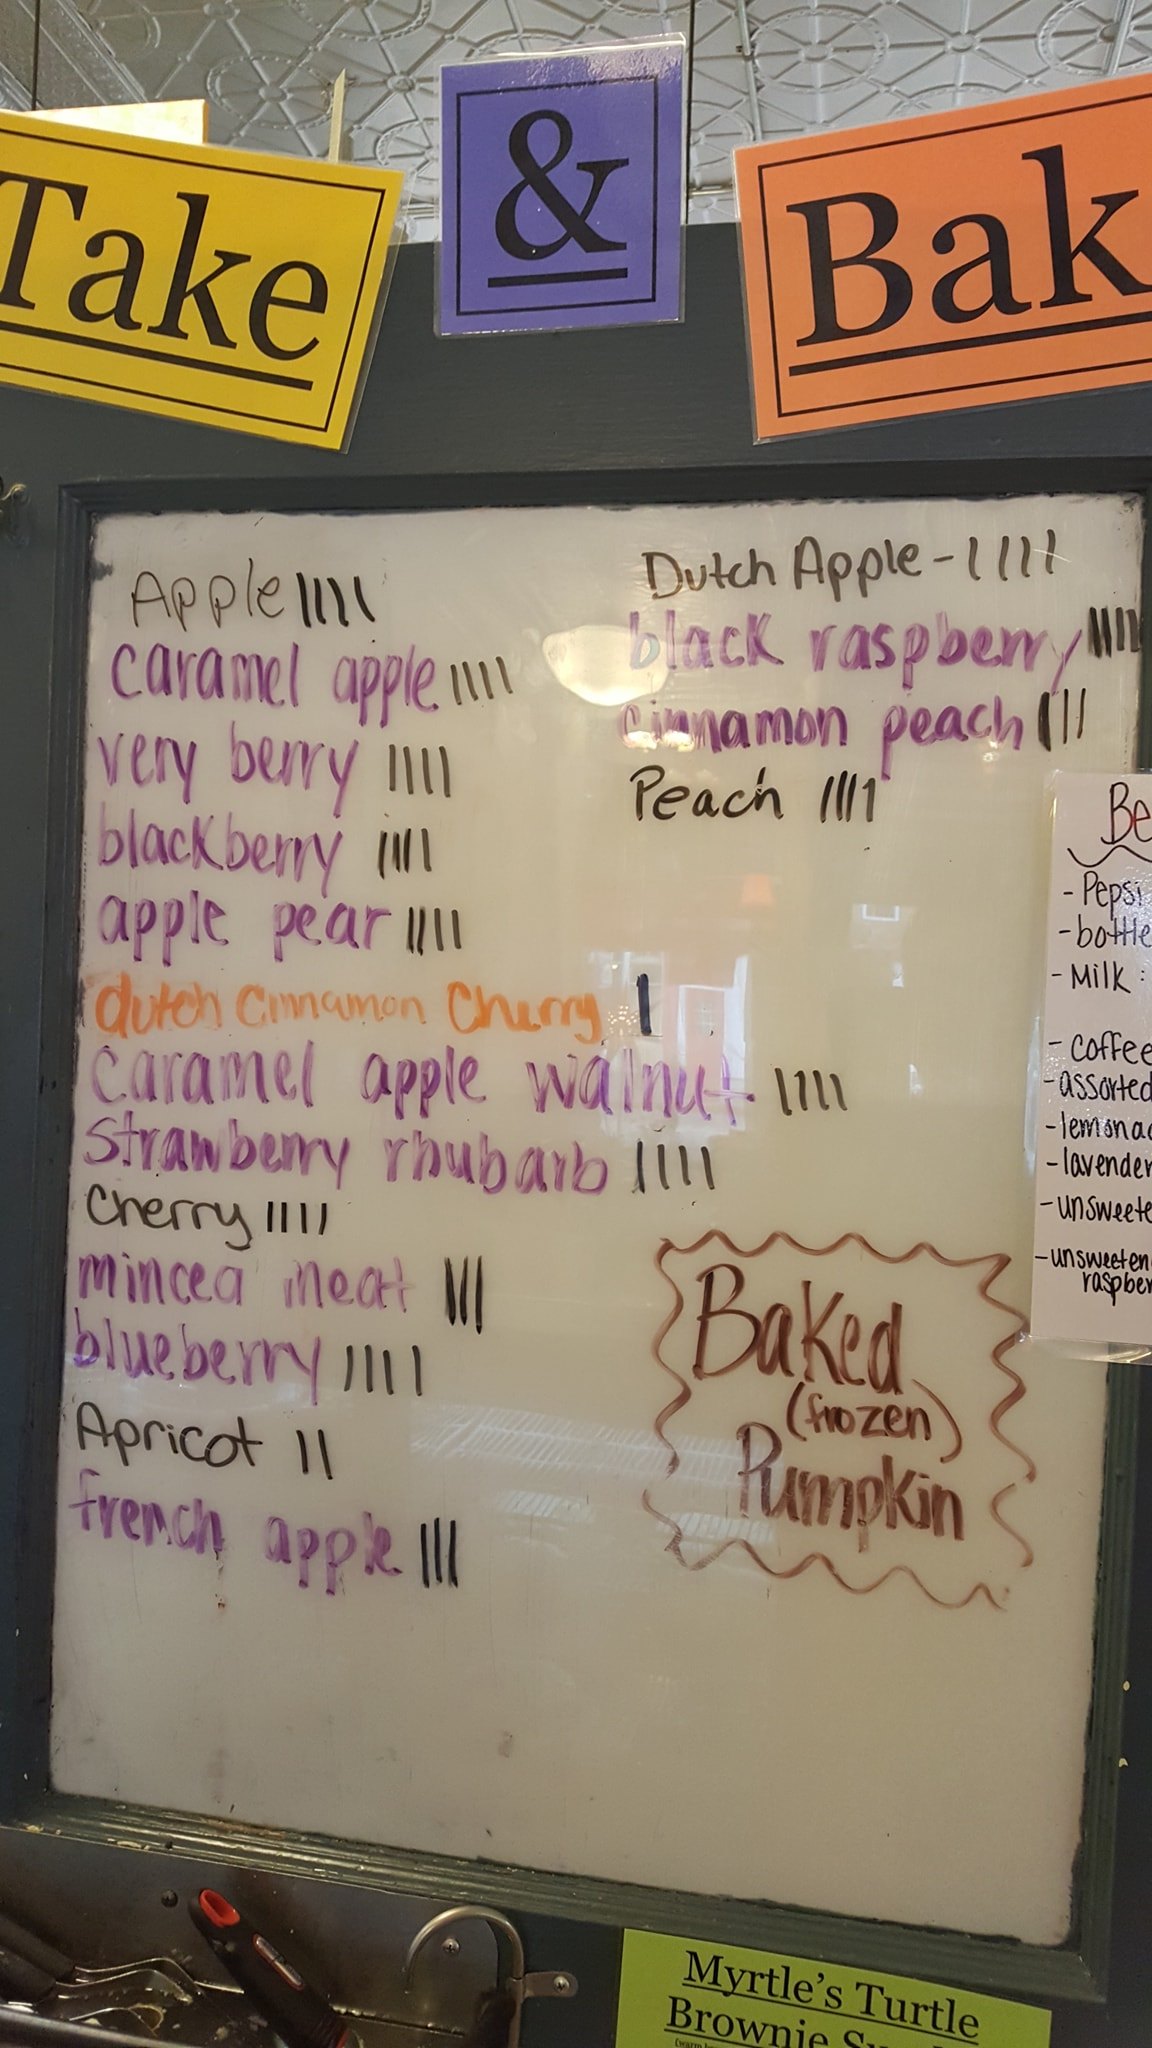 Take & Bak
Apple ||||
caramel apple ||||
very berry ||||
blackberry ||||
apple pear ||||
dutch cinnamon Cherry |
caramel apple walnut ||||
Strawberry rhubarb ||||
Cherry ||||
mincea meat |||
blueberry ||||
Apricot ||
french apple |||
Dutch Apple - ||||
black raspberry ||||
cinnamon peach |||
Peach ||||
Baked
(frozen)
Pumpkin
Be
- Pepsi
- bottle
- Milk :
- coffee
- assorted
- lemonad
- lavender
- unsweete
- unsweeten
raspber
Myrtle's Turtle
Brownie